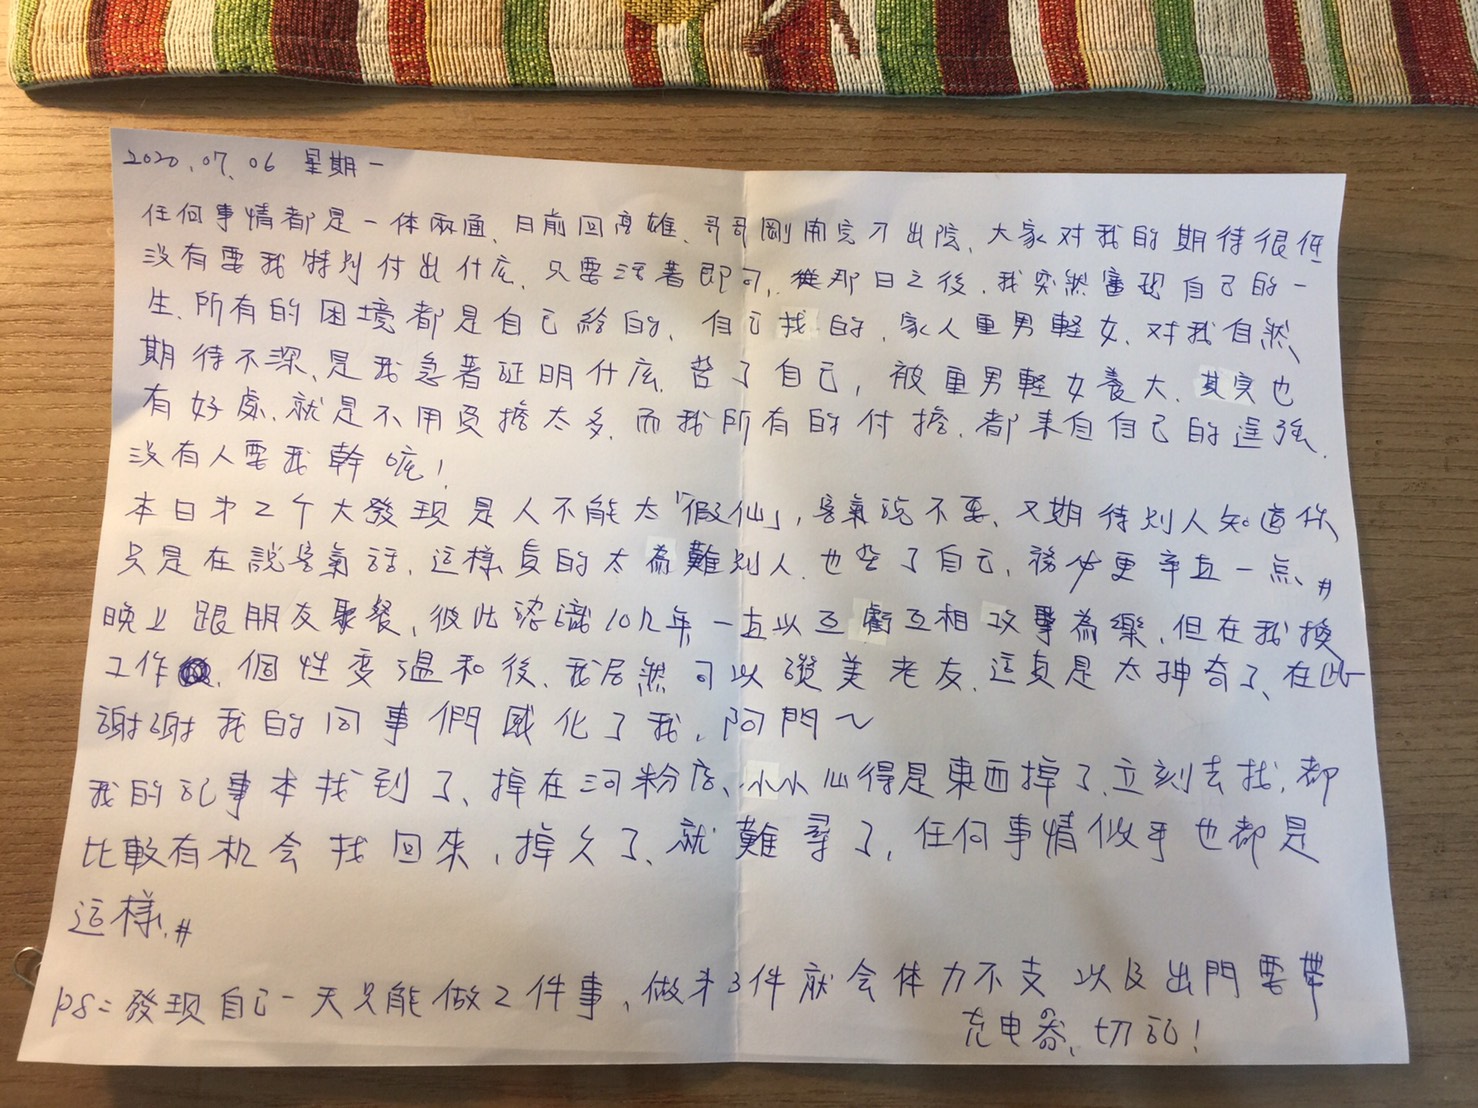 2020.07.06 星期一
任何事情都是一体兩通、日前回高雄、哥哥剛開完刀出院、大家对我的期待很低
沒有要我特別付出什広、只要活著即可、從那日之後、我突然審現自己的一
生、所有的困境都是自己給的、自己找的、家人重男輕女、对我自然
期待不深、是我急著证明什広、苦了自己，被重男輕女養大、其实也
有好處、就是不用負擔太多、而我所有的付擔、都来自自己的逞強、
沒有人要我幹嘛！
本日才2个大發现是人不能太「假仙」，客氣說不要、又期待別人知道你
只是在說客氣话、这樣真的太為難別人、也苦了自己、務必更辛直一点、#
晚上跟朋友聚餐、彼此認識10几年一直以互虧互相攻擊為樂、但在我換
工作、個性变溫和後、我居然可以讚美老友、這真是太神奇了、在此
谢谢我的同事們感化了我、阿門～
我的记事本找到了、掉在河粉店、小小心得是東西掉了、立刻去找、都
比較有机会找回來，掉久了、就難尋了，任何事情似乎也都是
这樣、#
ps=發现自己一天只能做2件事、做才3件就会体力不支以及出門要帶
充电器、切記！